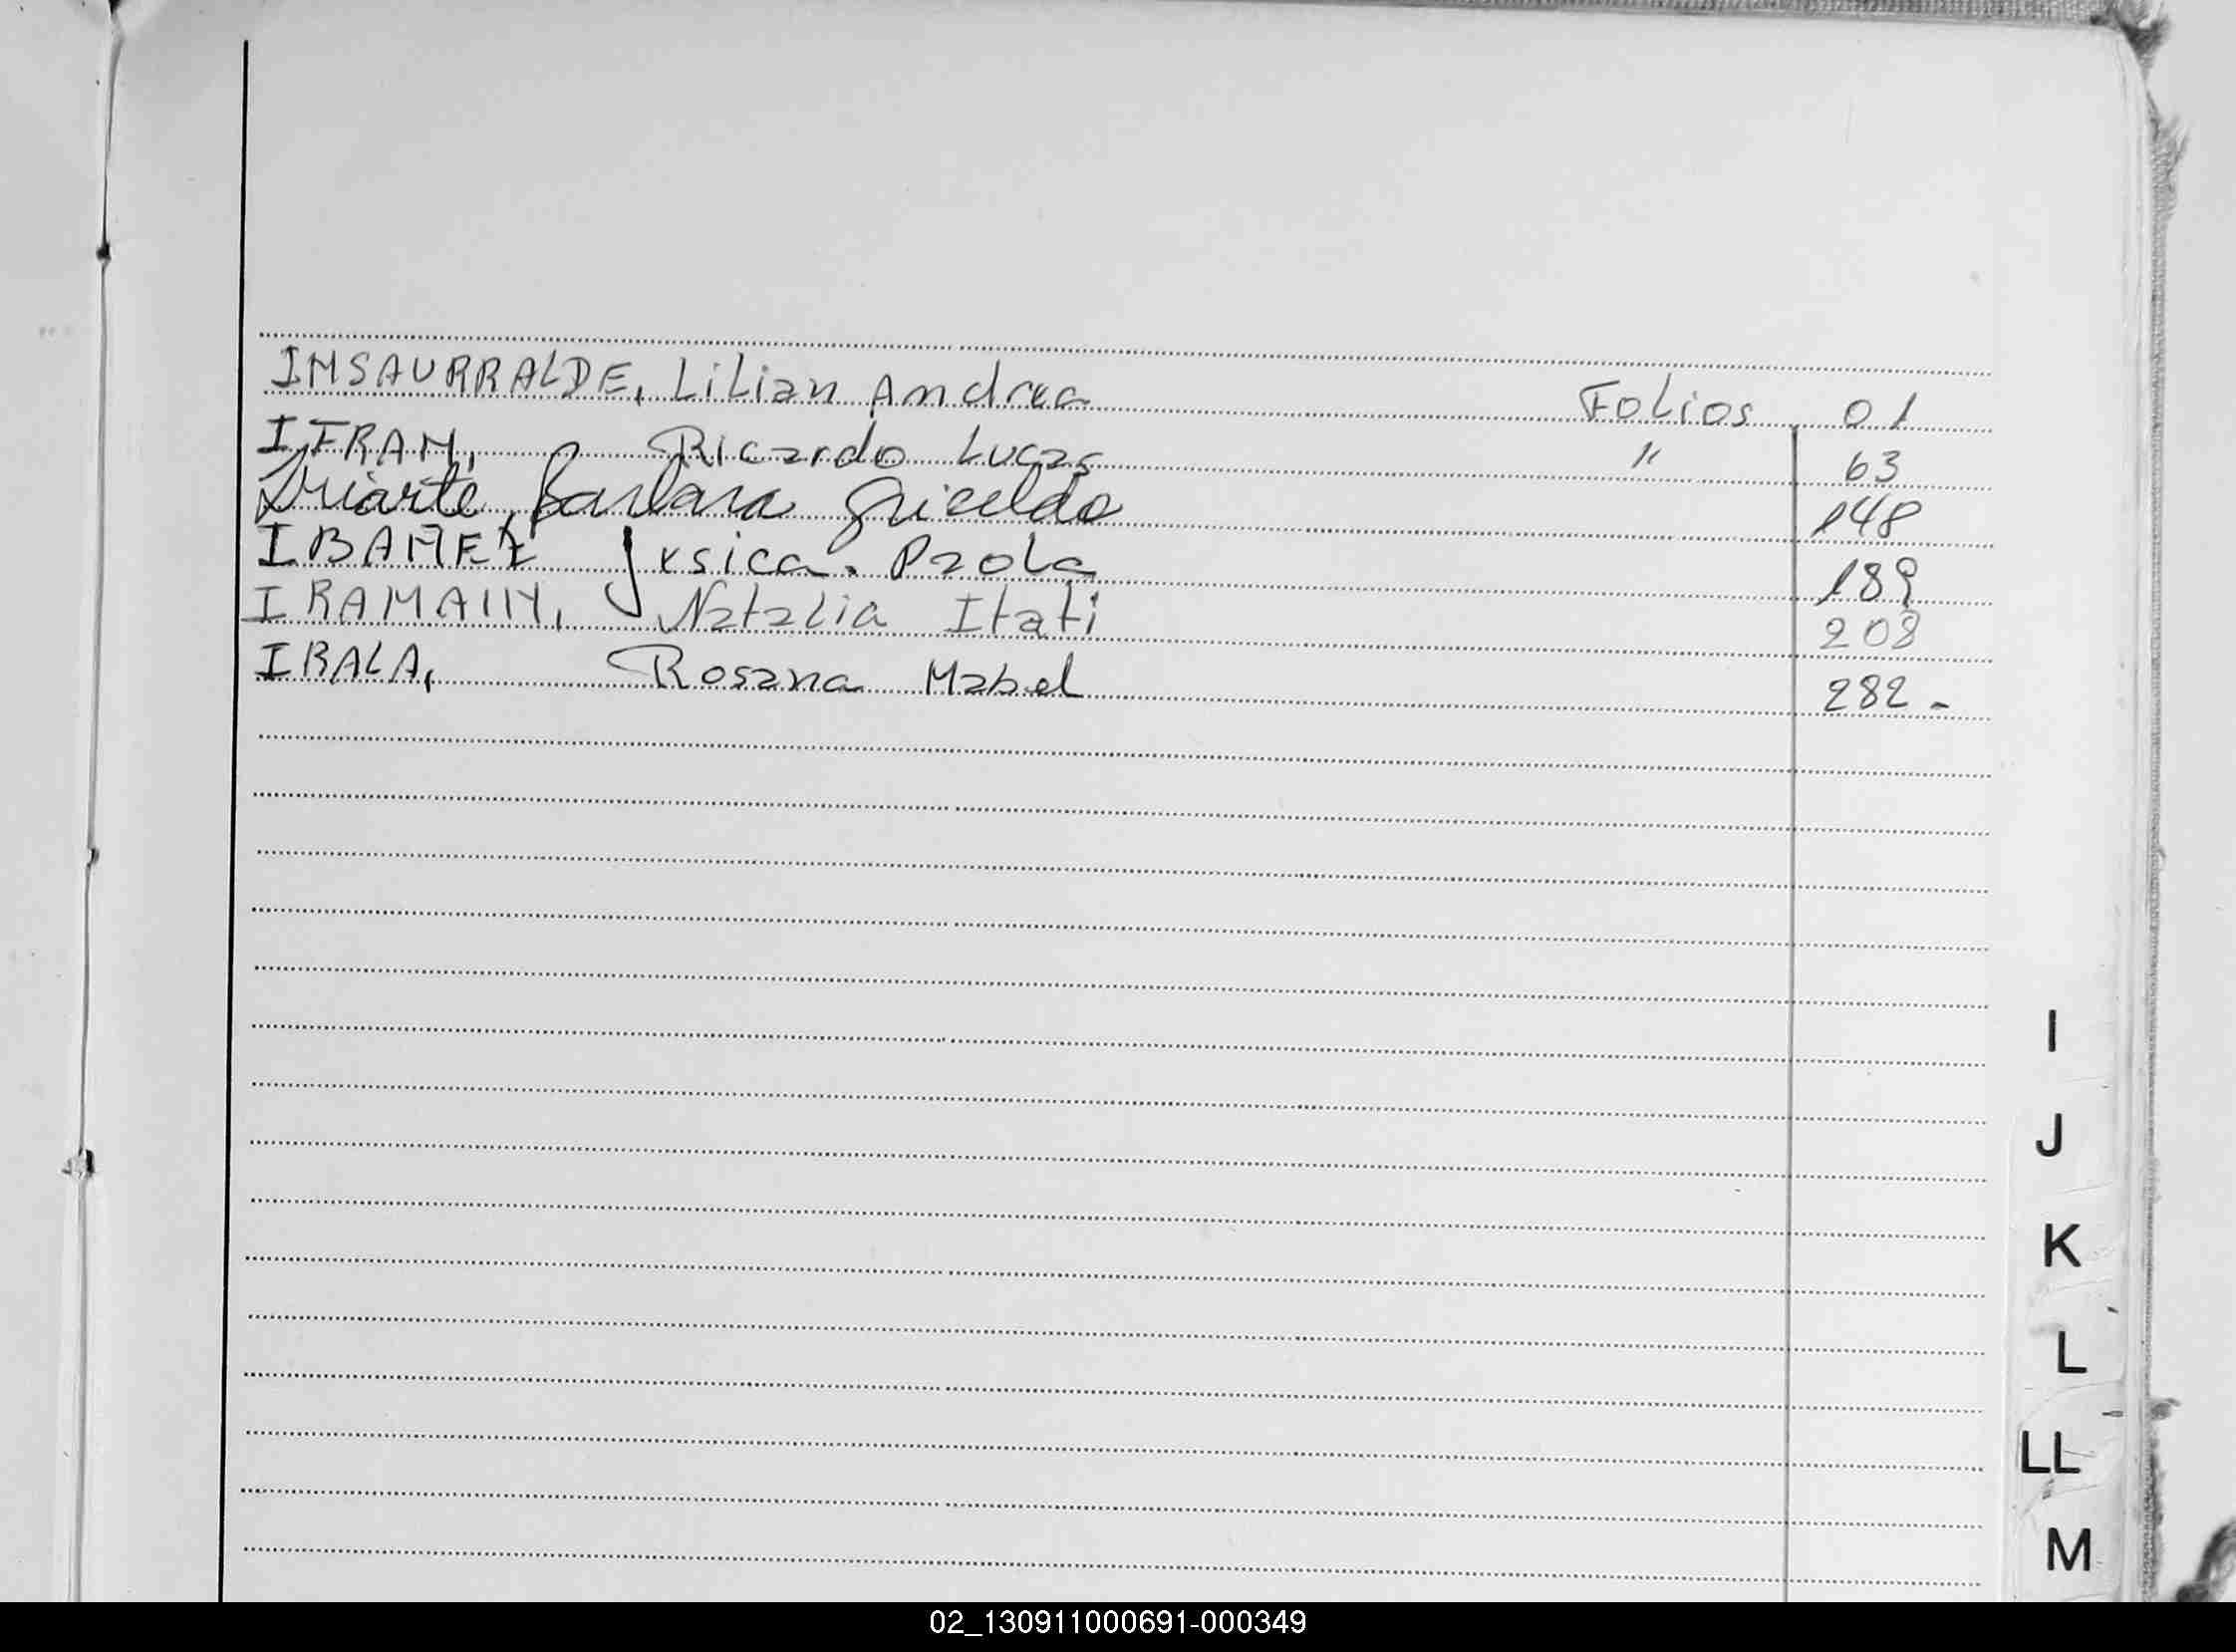 INSAURRALDE, Lilian Andrea Folios 01
IFRAN, Ricardo Lucas " 63
Iriarte, Barbara Griselda 148
IBAÑEZ Jesica. Paola 189
IRAMAIN, Natalia Itati 208
IRALA, Rosana Mabel 282 -
I
J
K
L
LL
M
02_130911000691-000349